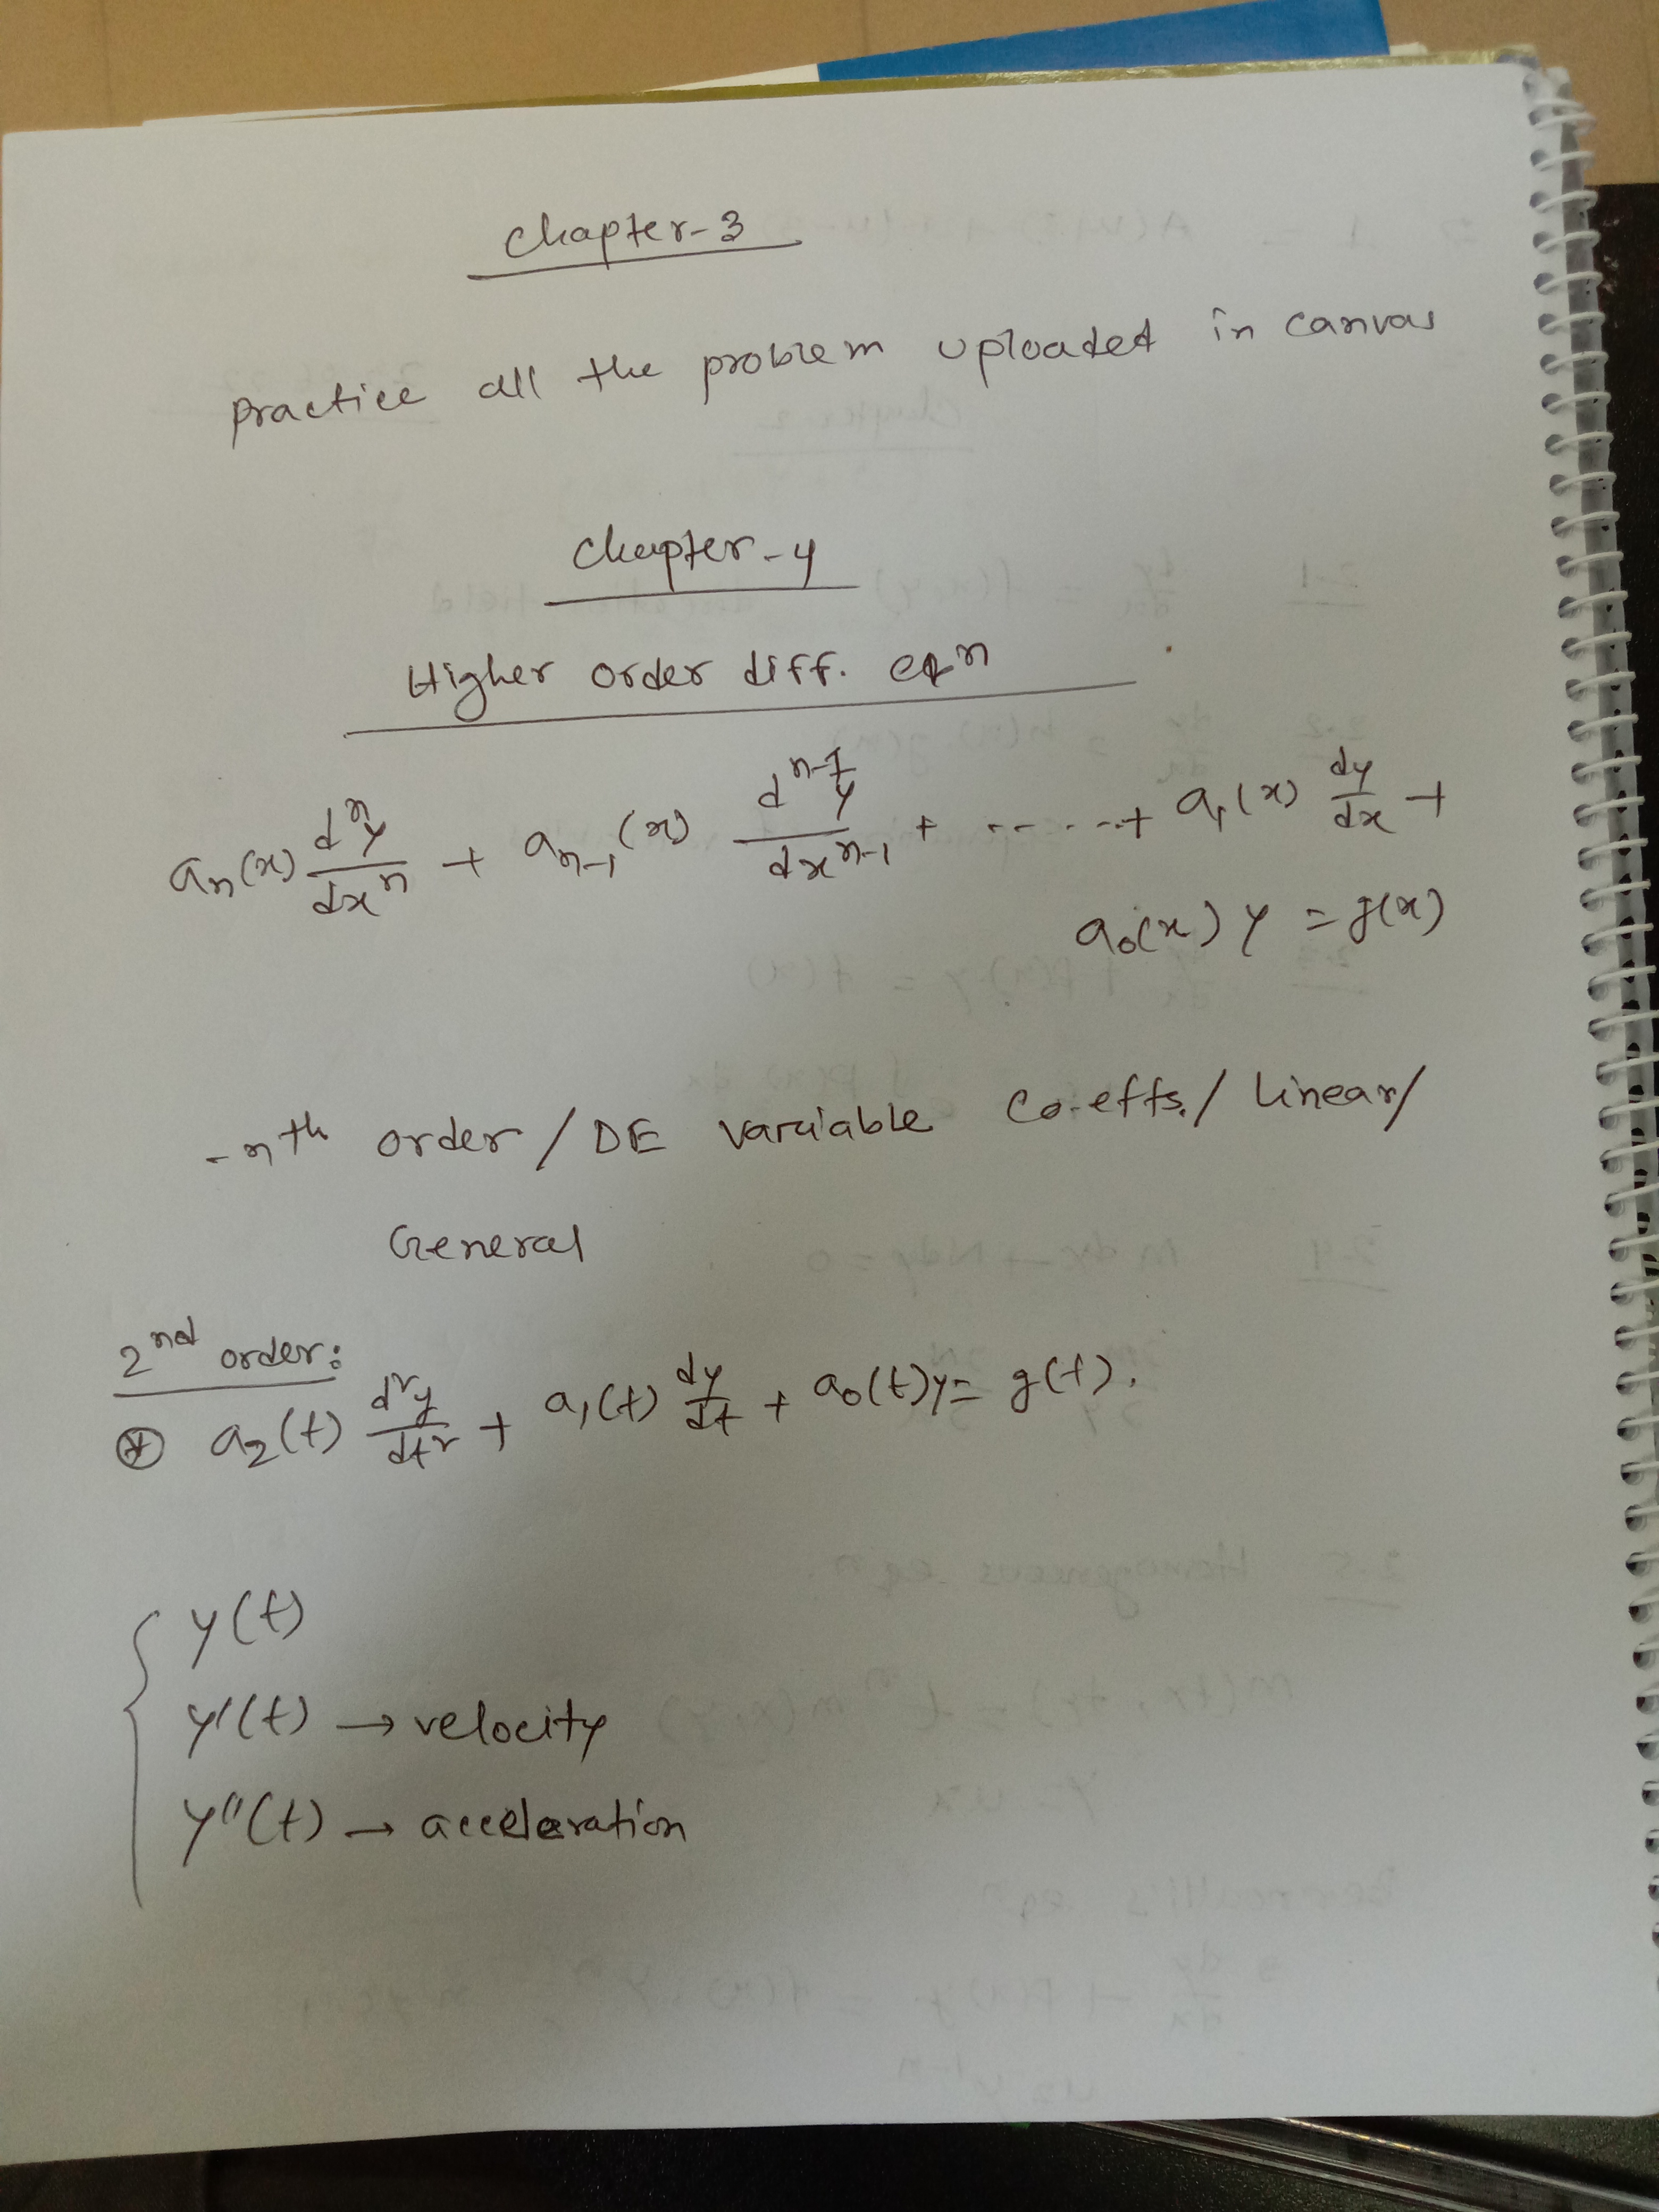 Chapter-3
practice all the problem uploaded in canvas
Chapter-4
Higher order diff. eqn
aₙ(x) dⁿy/dxⁿ + aₙ₋₁(x) dⁿ⁻¹y/dxⁿ⁻¹ + ------+ a₁(x) dy/dx +
a₀(x) y = g(x)
- nth order / DE variable co-effs. / linear /
General
2nd order:
⊛ a₂(t) d²y/dt² + a₁(t) dy/dt + a₀(t)y = g(t).
y(t)
y'(t) → velocity
y''(t) → acceleration